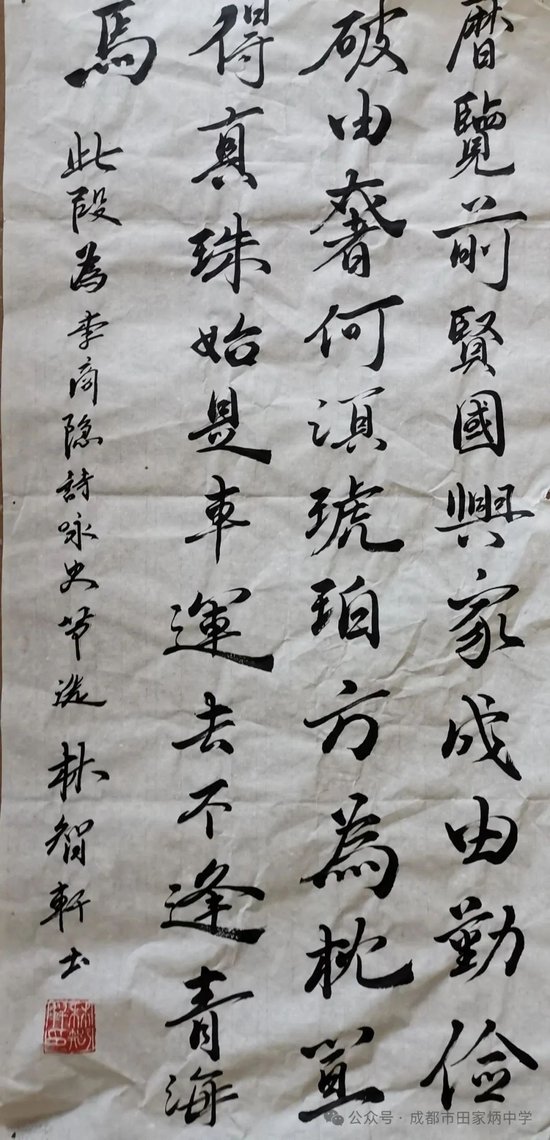 曆覽前賢國與家成由勤儉
破由奢何須琥珀方為枕豈
得真珠始是車運去不逢青海
馬
此段為李商隐詩咏史节选 林智軒书
公众号·成都市田家炳中学